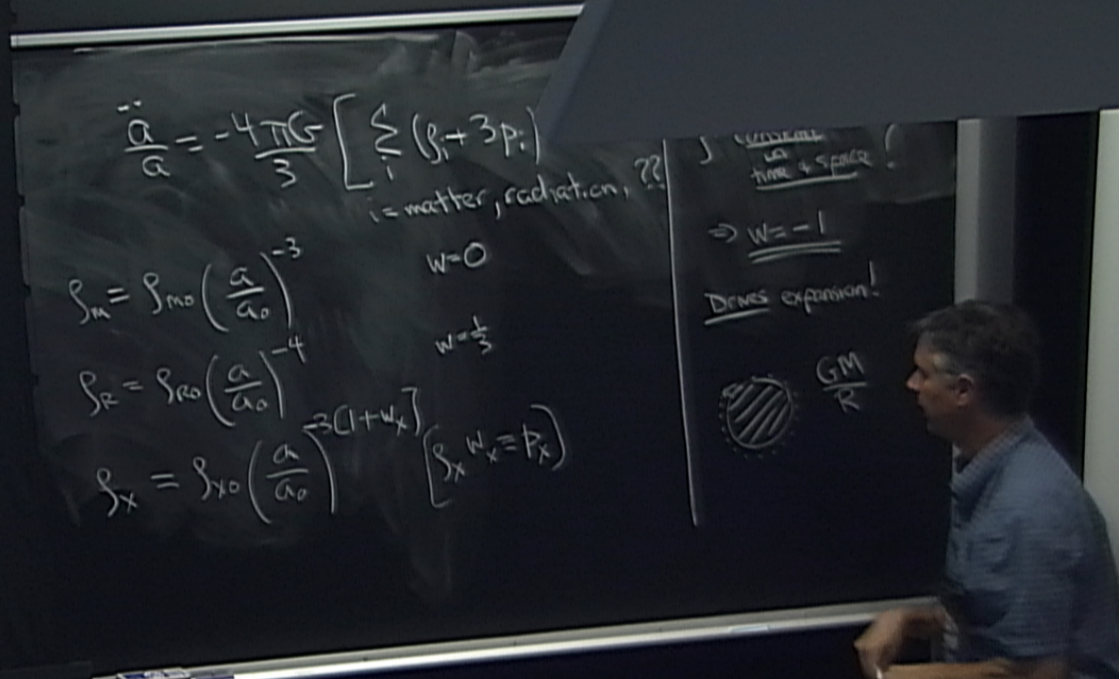 ä/a = -4πG/3 [ Σ_i (ρ_i + 3p_i)
i = matter, radiation, ??
ρ_M = ρ_M0 (a/a_0)^-3 w=0
ρ_R = ρ_R0 (a/a_0)^-4 w=1/3
ρ_X = ρ_X0 (a/a_0)^-3[1+w_X] [ρ_X w_X ≡ p_X)
in
time + space !
⇒ w=-1
Drives expansion!
GM/R